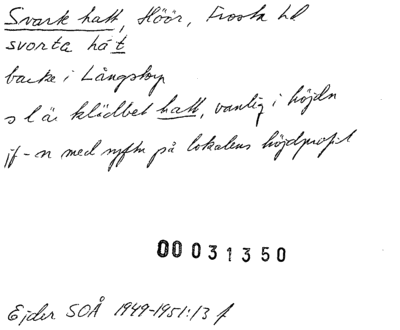 Svark hatt, Höör, Frosta hd
svorta hát
backe i Långstorp
s l är klädbet hatt, vanlig i höjdn
jf -n med syftn på lokalens höjdprofil
00031350
Ejder SOÅ 1949-1951:13 f